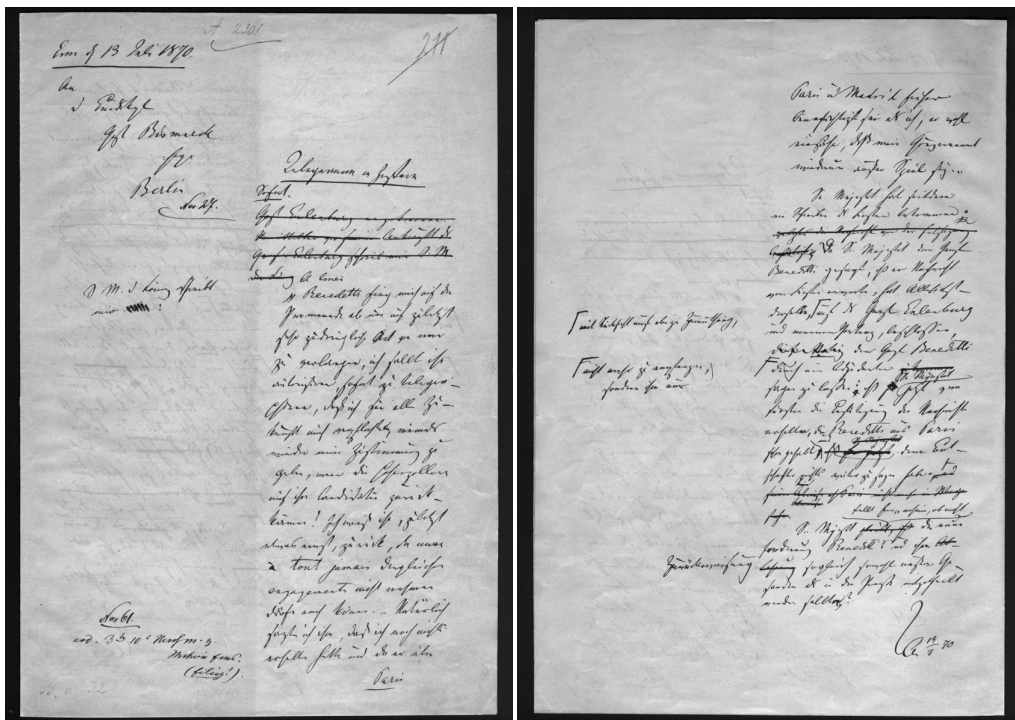 A. 2301
Ems d 13 Juli 1870.
An
d Bundeskzl
Graf Bismarck
Berlin
No 27.
S. M. d König schreibt
mir :
No 61.
Telegramm in Ziffern
Sofort.
Graf Eulenburg
Gf Benedetti fing mich auf der
Promenade ab um auf zuletzt
sehr zudringliche Art von mir
zu verlangen, ich sollte ihn
autorisiren, sofort zu telegra-
phiren, daß ich für alle Zu-
kunft mich verpflichtete niemals
wieder meine Zustimmung zu
geben, wenn die Hohenzollern
auf ihre Candidatur zurück-
kämen! Ich wies ihn, zuletzt
etwas ernst, zurück, da man
à tout jamais dergleichen
engagements nicht nehmen
dürfe noch könne. – Natürlich
sagte ich ihm, daß ich noch nichts
erhalten hätte und da er über
Paris
Paris u Madrid früher
benachrichtigt sei als ich, er wohl
einsähe, daß mein Gouvernement
wiederum außer Spiel sei. –
Se Majestät hat seitdem
ein Schreiben des Fürsten bekommen
Da S. Majestät dem Graf
Benedetti gesagt, daß er Nachricht
vom Fürsten erwarte, hat Allerhöchst-
derselbe, auf des Graf Eulenburg
und meinen Vortrag, beschlossen,
den Graf Benedetti
mit Rücksicht auf obige Zumuthung,
nicht mehr zu empfangen,
sondern ihm nur
durch ein Adjudanten
sagen zu lassen: daß Se Majestät jetzt vom
Fürsten die Bestätigung der Nachricht
erhalten, die Benedetti aus Paris
schon gehabt, dem Bot-
schafter nichts weiter zu sagen habe.
S. Majestät stellt anheim, ob nicht die neue
Forderung Benedetti's und ihre
Zurückweisung
sogleich sowohl unsern Ge-
sandten als in der Presse mitgetheilt
werden sollte?
A. 13/7 70